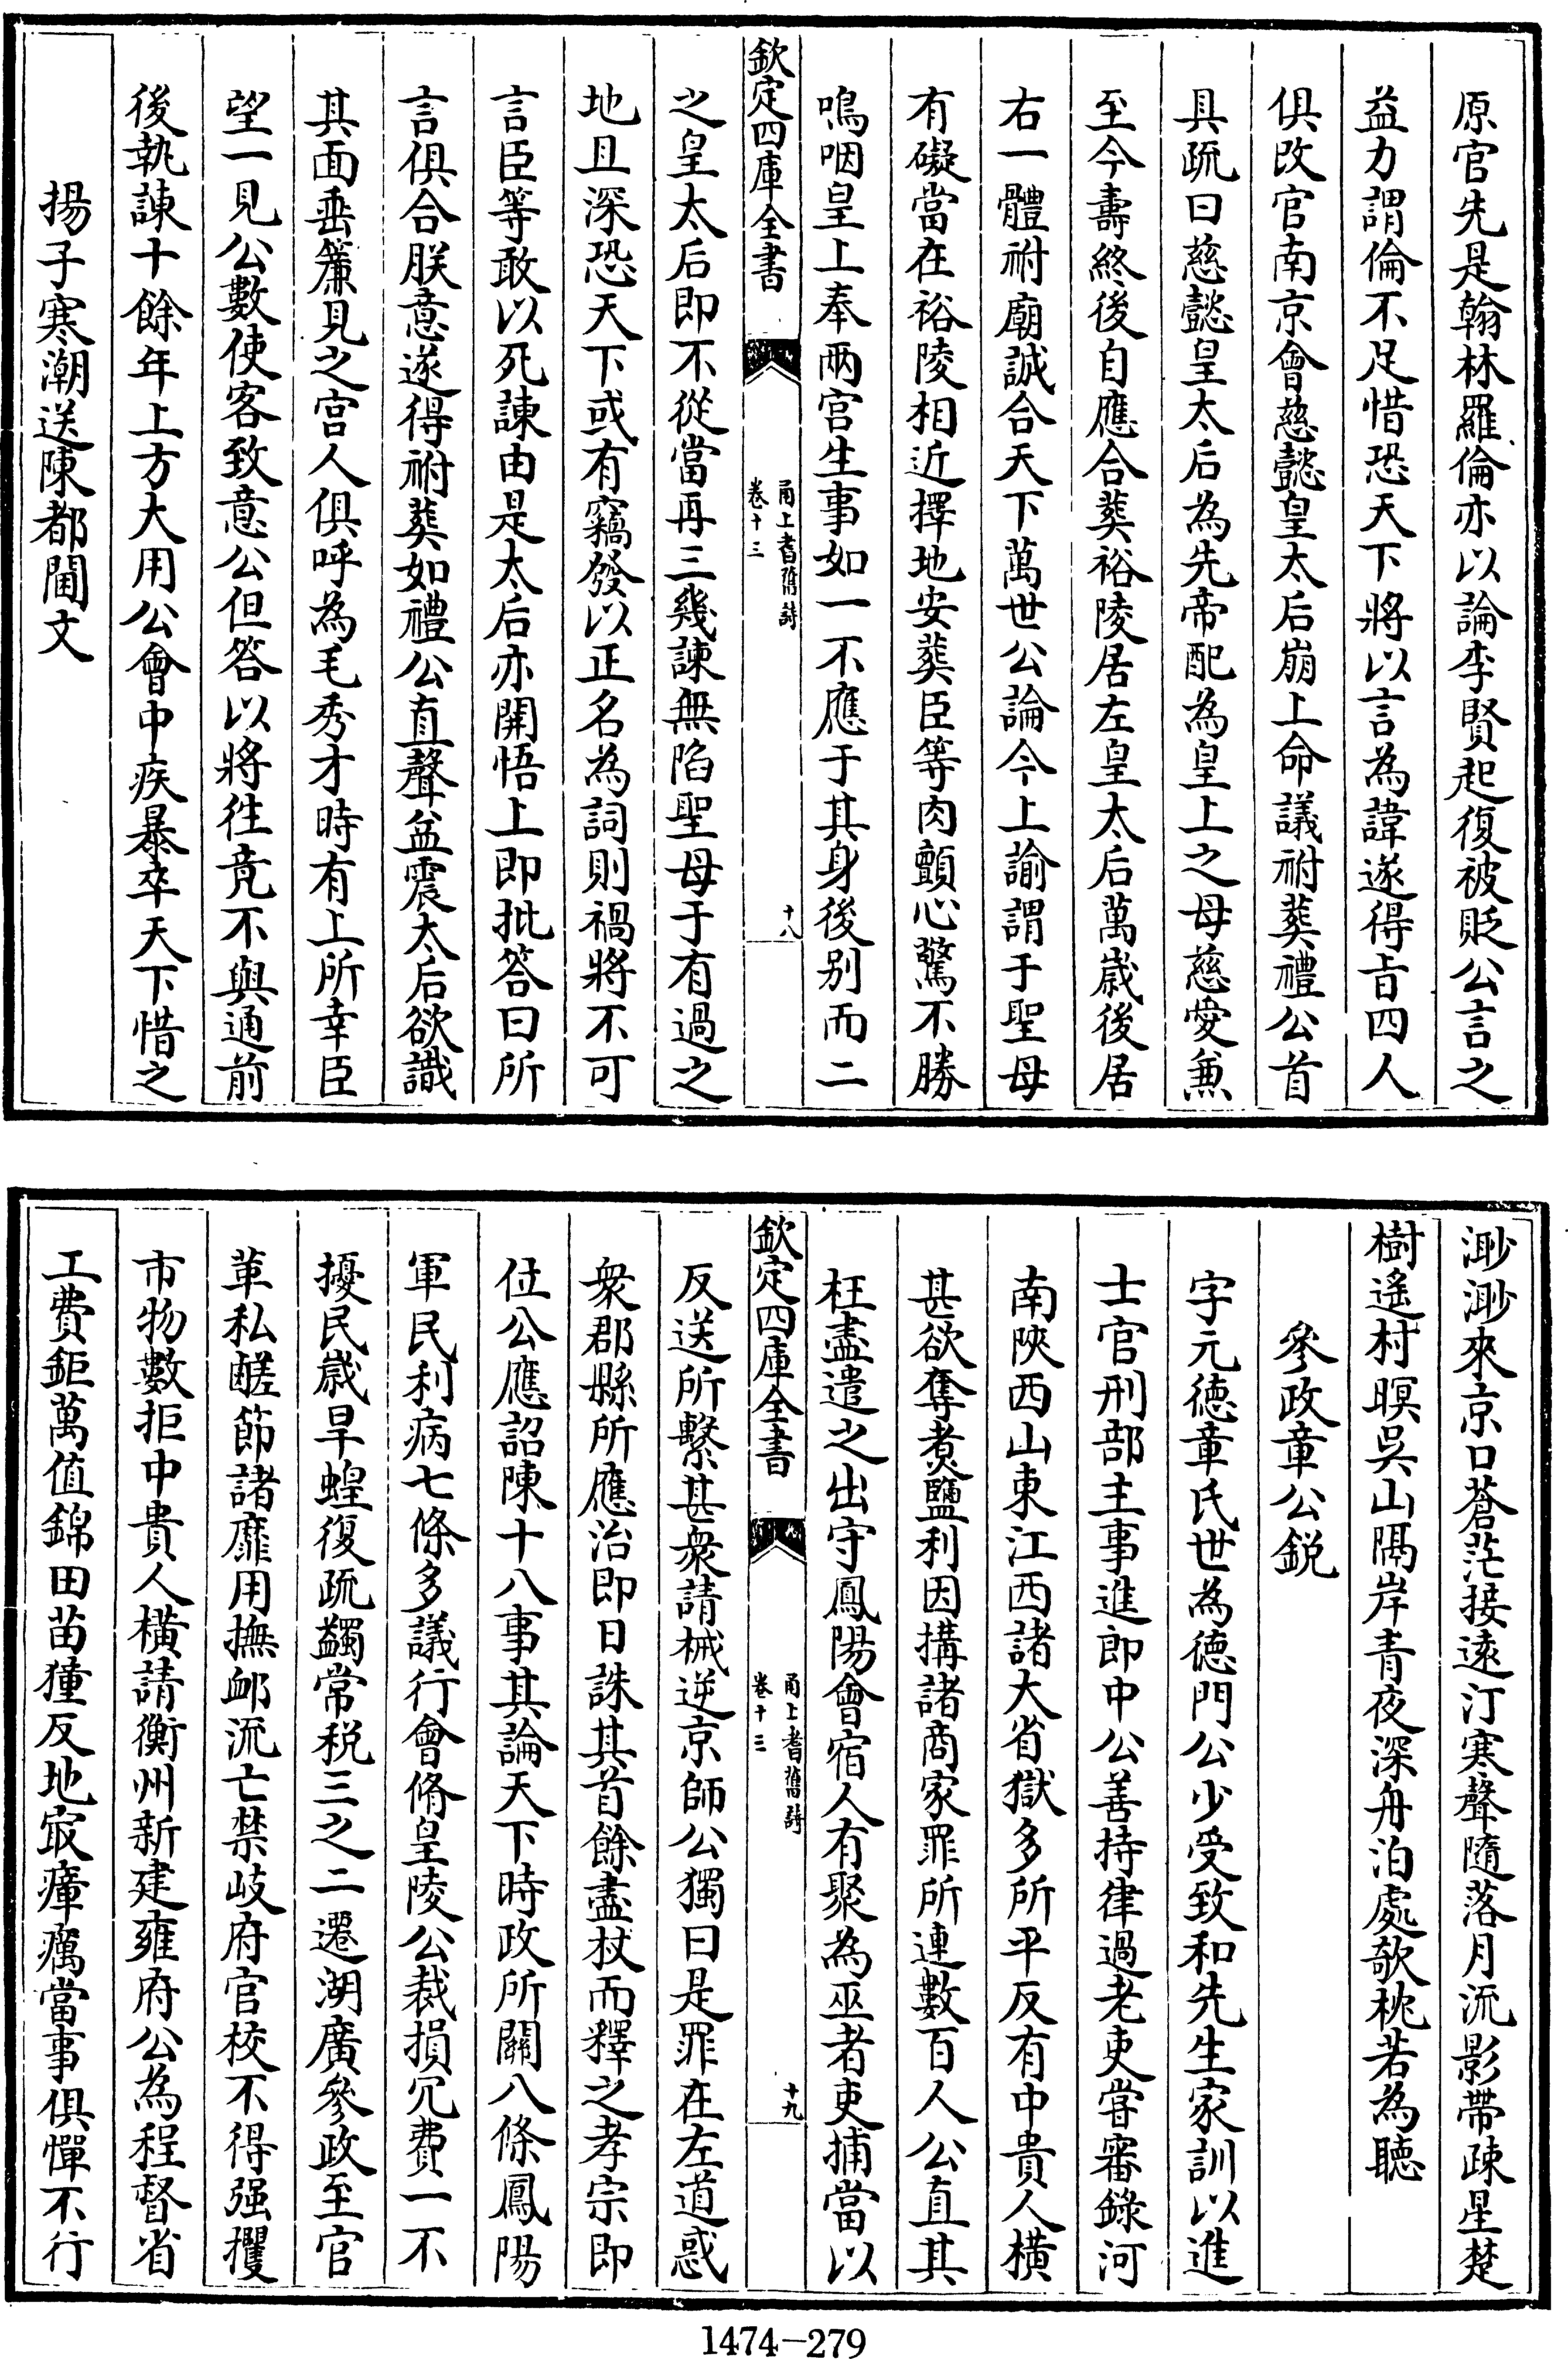 原官先是翰林羅倫亦以論李賢起復被貶公言之
益力謂倫不足惜恐天下將以言為諱遂得㫖四人
俱改官南京會慈懿皇太后崩上命議祔葬禮公首
具疏曰慈懿皇太后為先帝配為皇上之母慈愛兼
至今壽終後自應合葬裕陵居左皇太后萬歲後居
右一體祔廟誠合天下萬世公論今上諭謂于聖母
有礙當在裕陵相近擇地安葬臣等肉顫心驚不勝
嗚咽皇上奉兩宫生事如一不應于其身後别而二
欽定四庫全書
甬上耆舊詩
卷十三
十八
之皇太后即不從當再三幾諫無陷聖母于有過之
地且深恐天下或有竊發以正名為詞則禍將不可
言臣等敢以死諫由是太后亦開悟上即批答曰所
言俱合朕意遂得祔葬如禮公直聲益震太后欲識
其面垂簾見之宫人俱呼為毛秀才時有上所幸臣
望一見公數使客致意公但答以將徃竟不與通前
後執諫十餘年上方大用公會中疾暴卒天下惜之
揚子寒潮送陳都閫文
渺渺來京口蒼茫接逺汀寒聲隨落月流影帶疎星楚
樹遥村暝吳山隔岸青夜深舟泊處欹枕若為聽
參政章公銳
字元德章氏世為德門公少受致和先生家訓以進
士官刑部主事進郎中公善持律過老吏嘗審錄河
南陜西山東江西諸大省獄多所平反有中貴人横
甚欲奪煑鹽利因搆諸商家罪所連數百人公直其
枉盡遣之出守鳳陽會宿人有聚為巫者吏捕當以
欽定四庫全書
甬上耆舊詩
卷十三
十九
反送所繫甚衆請械逆京師公獨曰是罪在左道惑
衆郡縣所應治即日誅其首餘盡杖而釋之孝宗即
位公應詔陳十八事其論天下時政所關八條鳳陽
軍民利病七條多議行會脩皇陵公裁損冗費一不
擾民歲旱蝗復疏蠲常税三之二遷湖廣參政至官
革私鹺節諸靡用撫䘏流亡禁岐府官校不得强攫
市物數拒中貴人横請衡州新建雍府公為程督省
工費鉅萬值錦田苗獞反地㝡瘴癘當事俱憚不行
1474-279